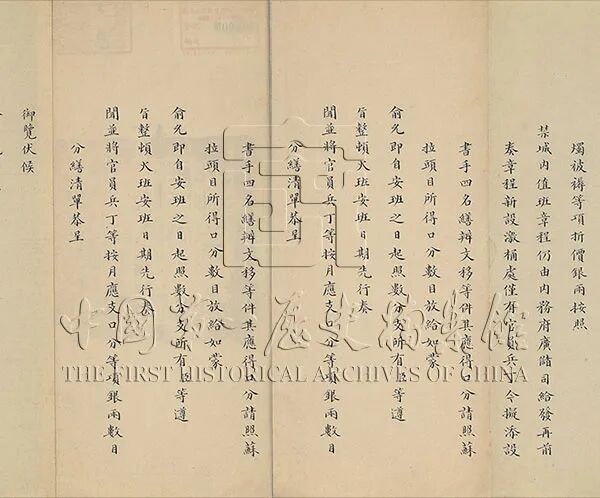 燭被褥等項折價銀兩按照
禁城内值班章程仍由内務府廣儲司給發再前
奏章程新設激桶處僅有官員兵丁今擬添設
書手四名繕辦文移等件其應得口分請照蘇
拉頭目所得口分數目放給如蒙
俞允即自安班之日起照數分支所有臣等遵
旨整頓火班安班日期先行奏
聞並將官員兵丁等按月應支口分等項銀兩數目
分繕清單恭呈
書手四名繕辦文移等件其應得口分請照蘇
拉頭目所得口分數目放給如蒙
俞允即自安班之日起照數分支所有臣等遵
旨整頓火班安班日期先行奏
聞並將官員兵丁等按月應支口分等項銀兩數目
分繕清單恭呈
御覽伏候
中國第一歷史檔案館
THE FIRST HISTORICAL ARCHIVES OF CHINA